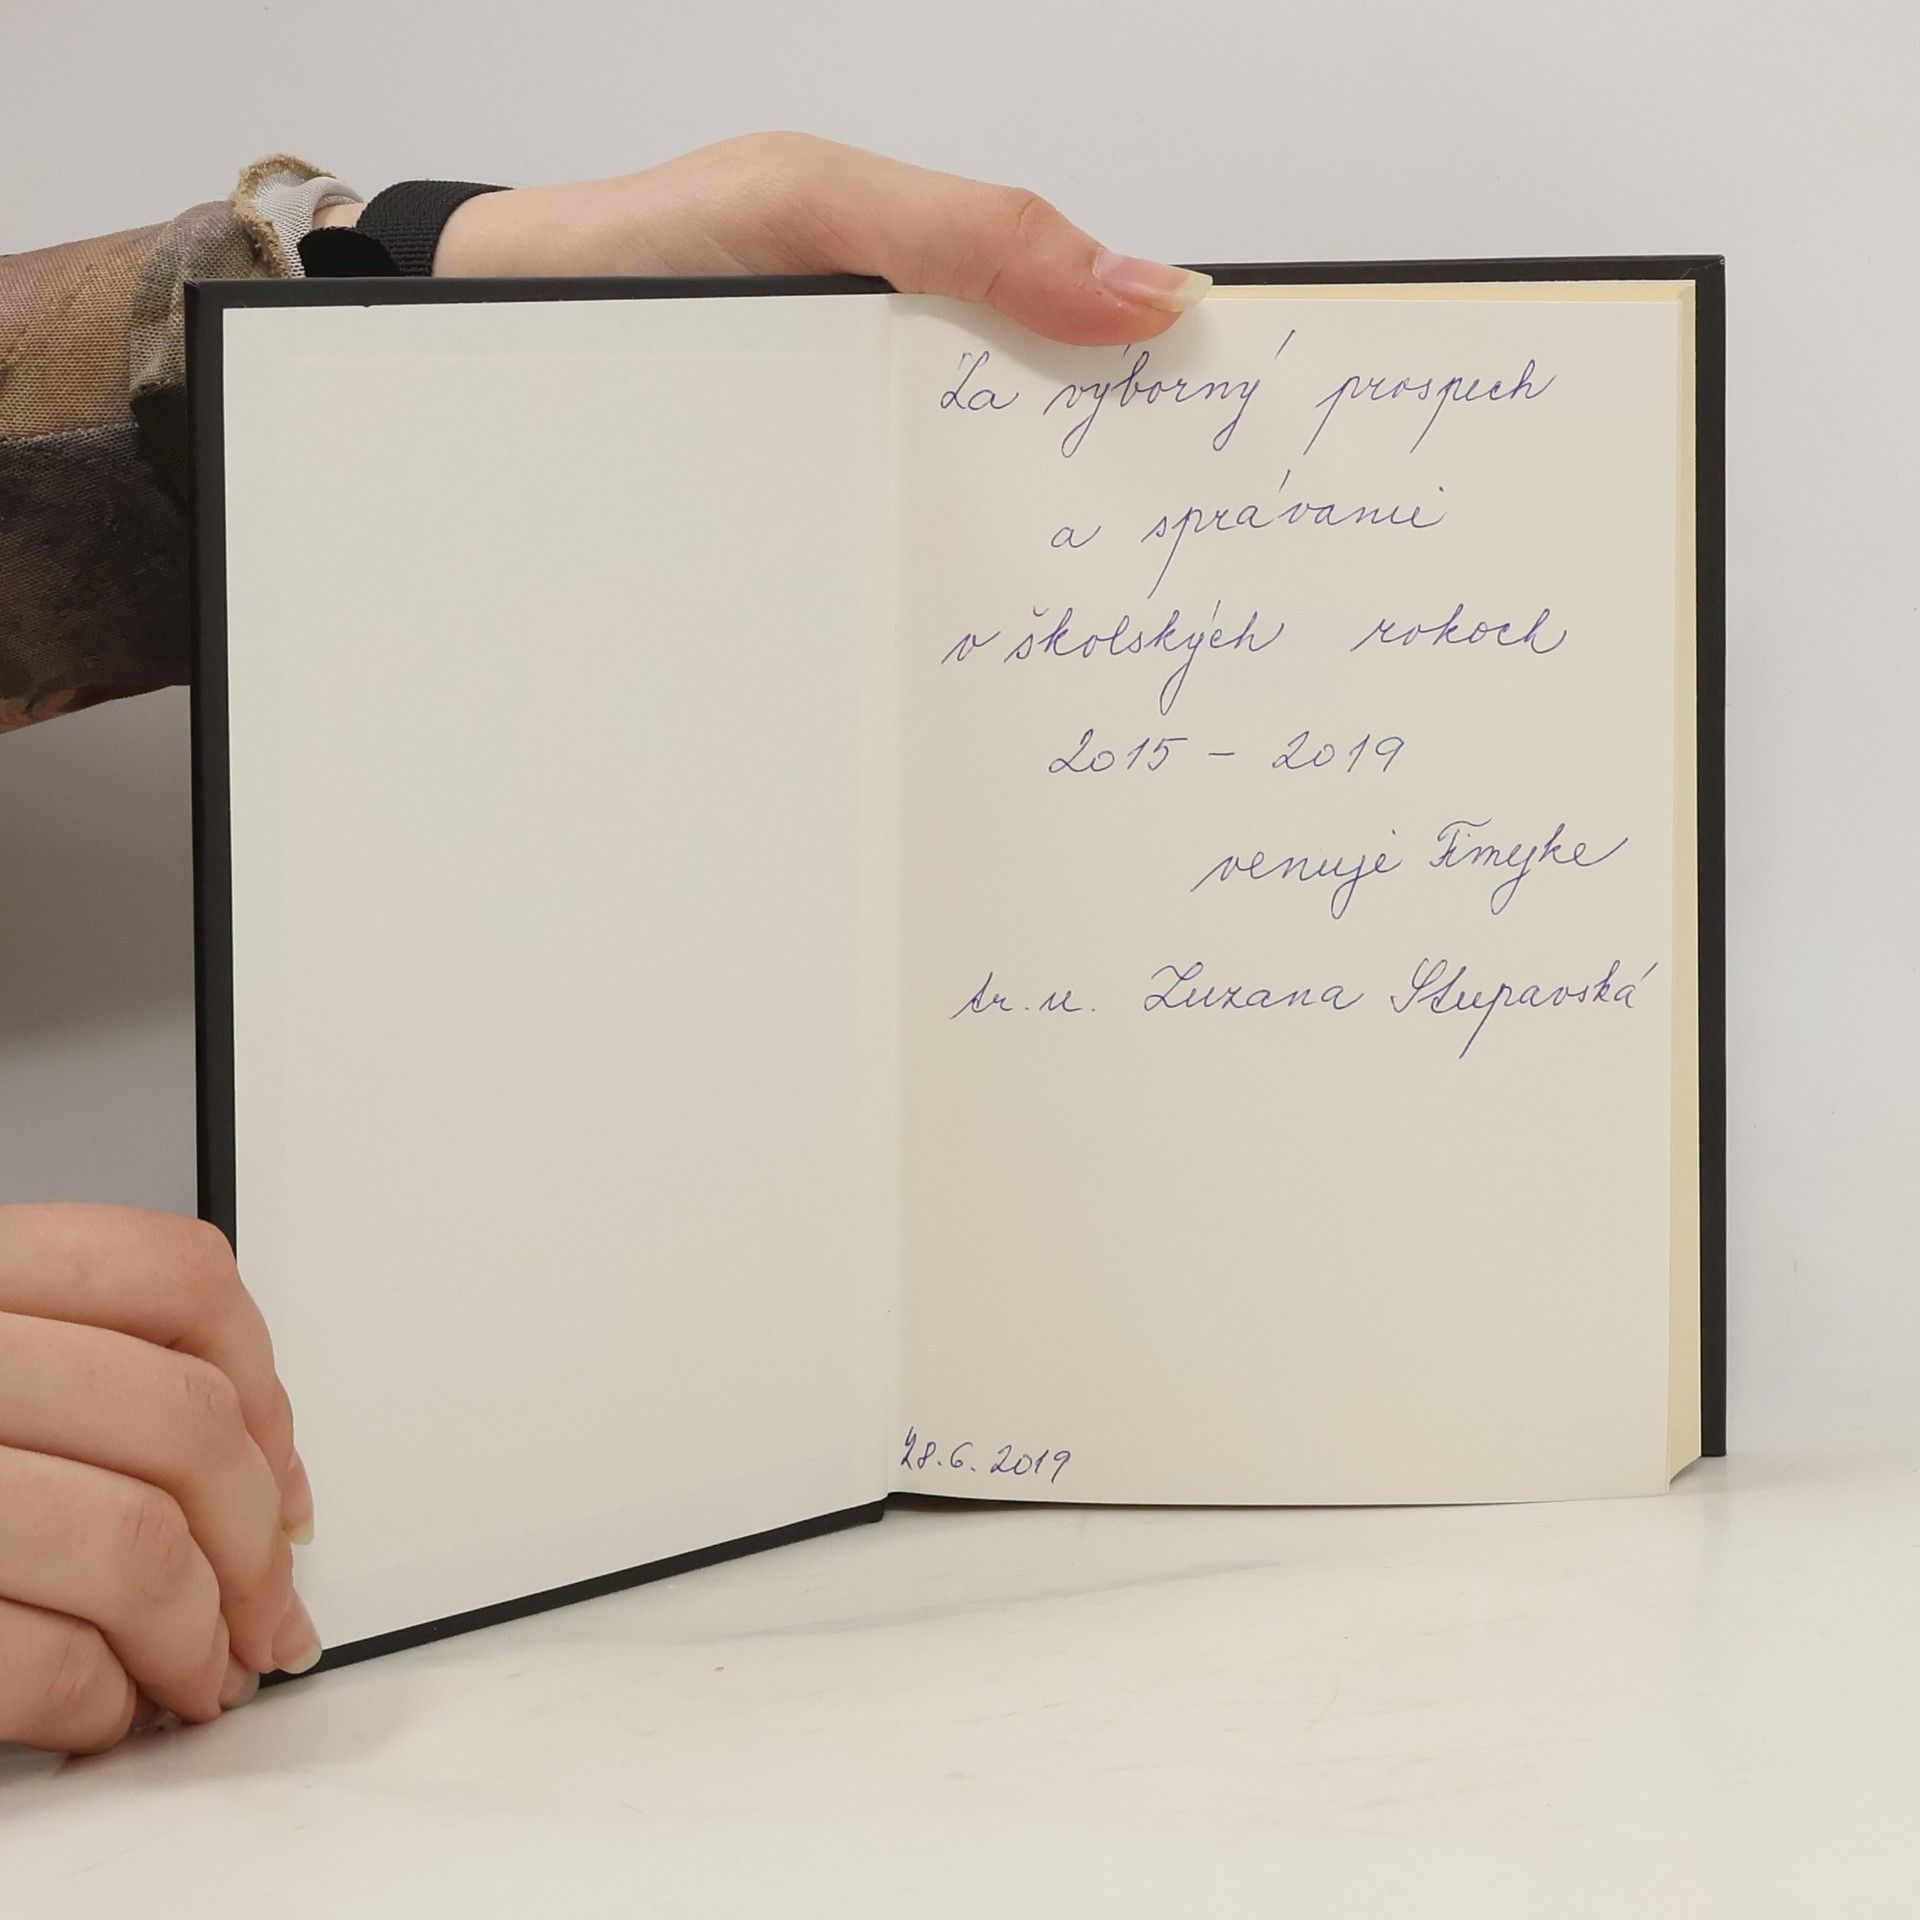 Za výborný prospech
a správanie
v školských rokoch
2015 - 2019
venuje Timejke
tr. u. Zuzana Stupavská
28.6.2019